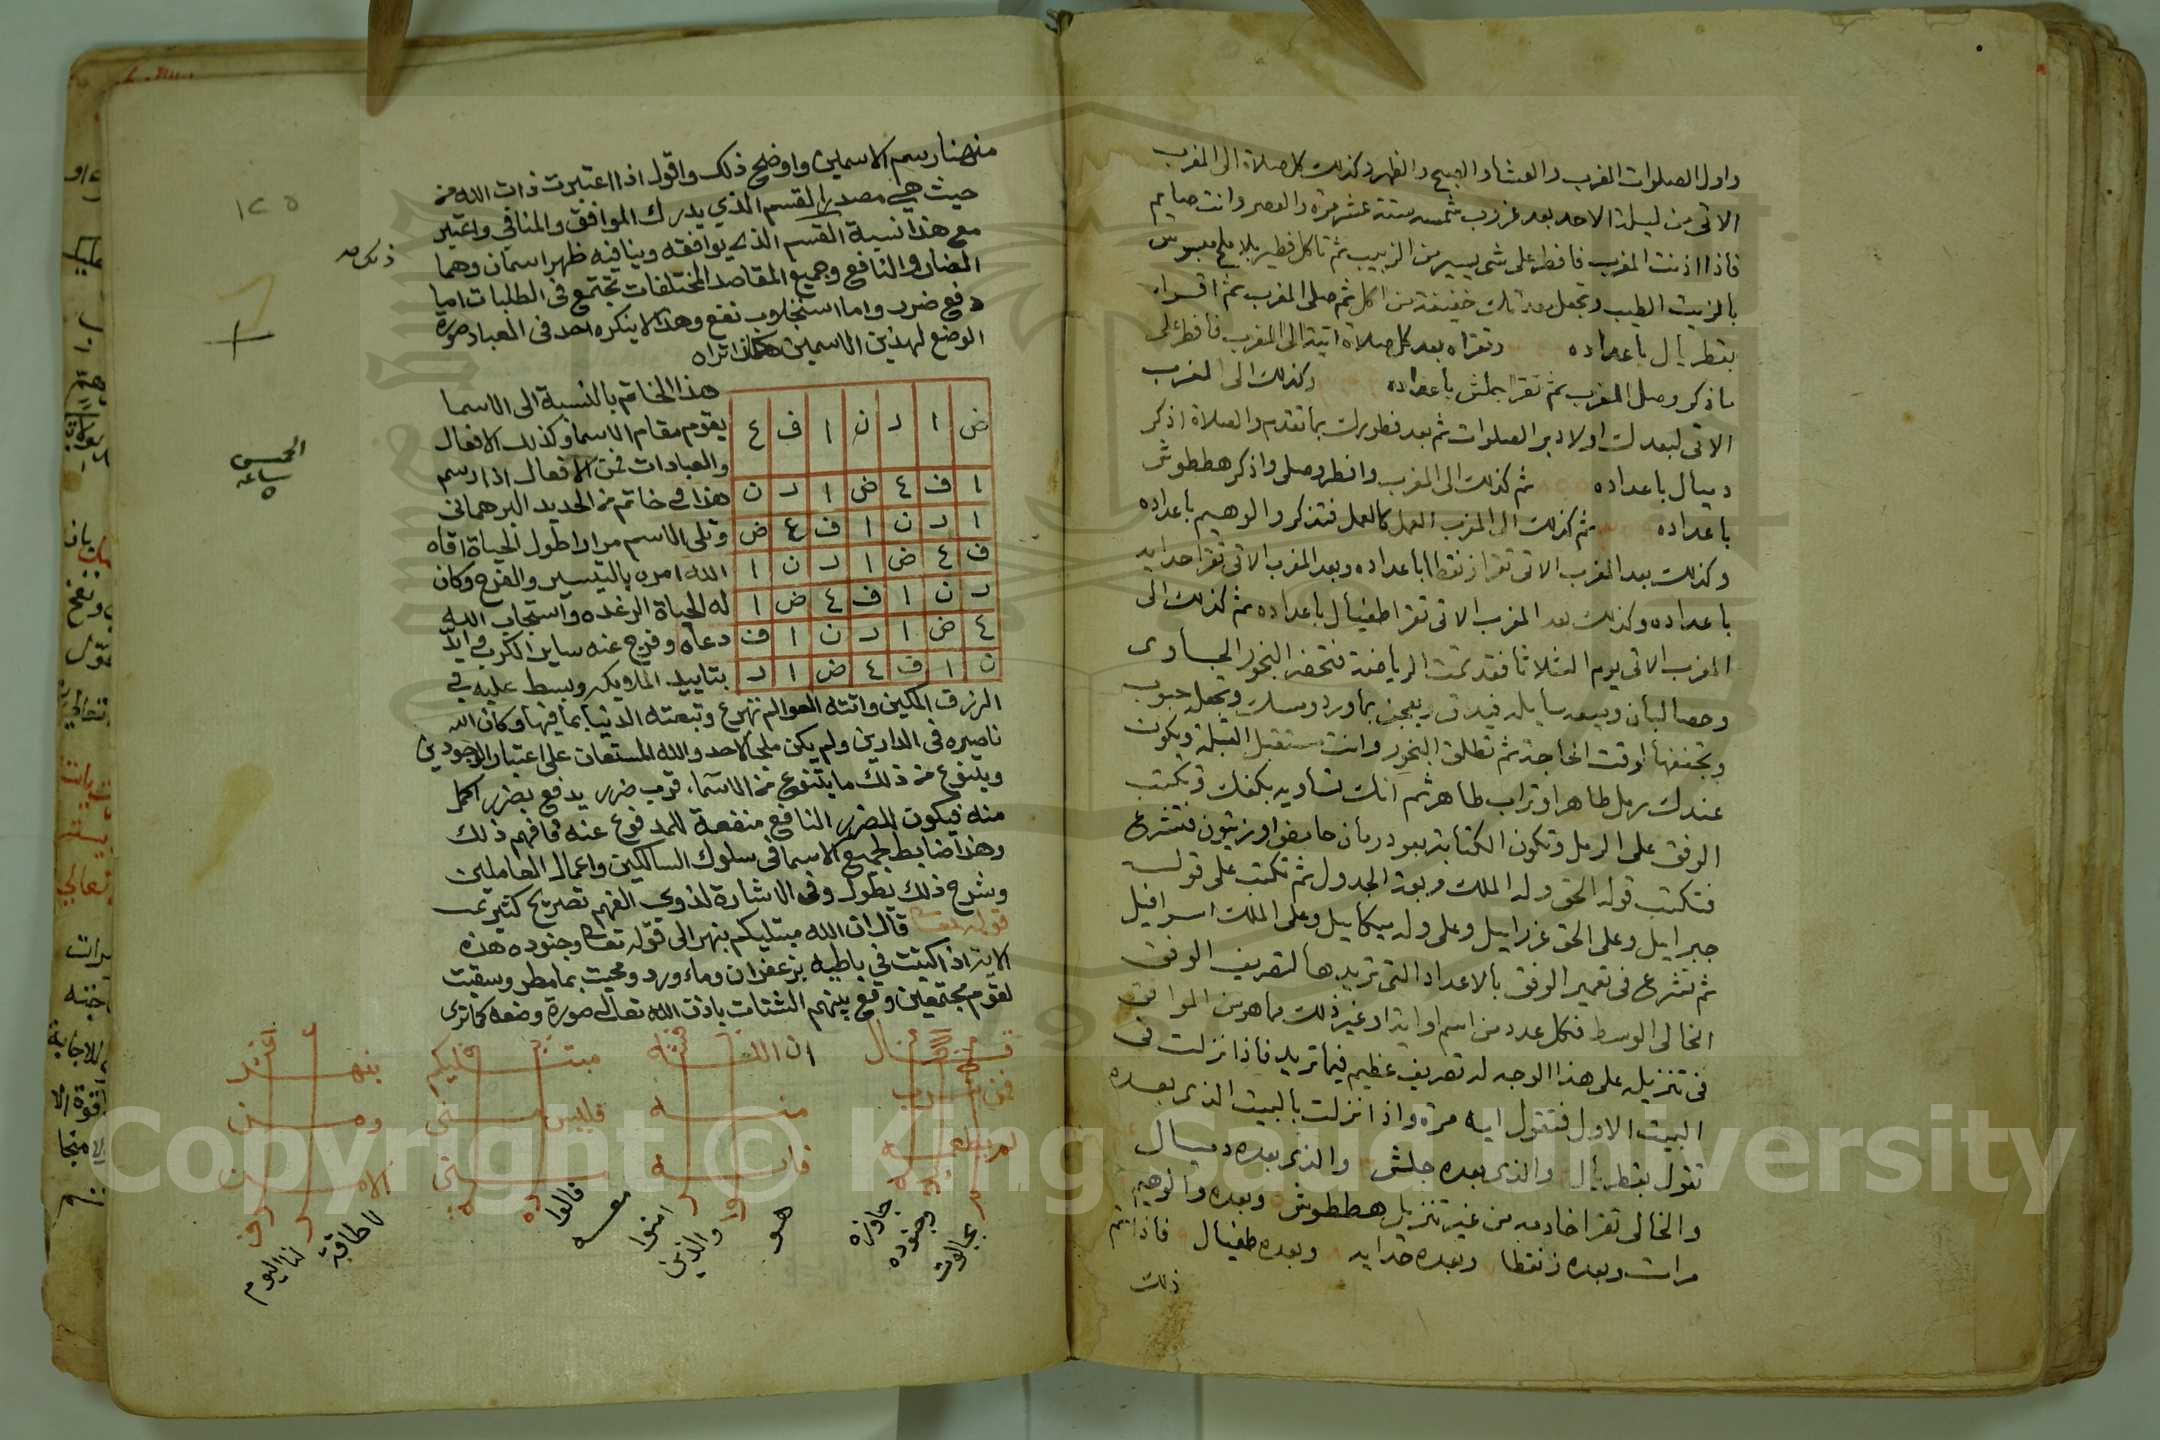 واول الصلوات المغرب والعشاء والصبح والظهر وكذلك كل صلاة الى المغرب
الاتى من ليلة الاحد بعد غروب شمسه ستة عشر مرة والعصر وانت صايم
فاذا اذنت المغرب فافطر على شى يسير من الزبيب ثم تاكل فطير بلا ملح مبسوس
بالزيت الطيب وتجعل معدتك خفيفة من اكل ثم صلى المغرب ثم اقراء
بقطريال باعداده وتقراه بعد كل صلاة اتية الى المغرب فافطر على
ماذكر وصل المغرب ثم تقرا جلش باعداده وكذلك الى المغرب
الاتى لبعدك اولا دبر الصلوات ثم بعد فطورك بما تقدم والصلاة اذكر
دميال باعداده ثم كذلك الى المغرب وافطر وصلى واذكر هططوش
باعداده ثم كذلك الى المغرب العمل كالعمل فتذكر والوهيم باعداده
وكذلك بعد المغرب الاتى تقرا زنقطا باعداده وبعد المغرب الاتى تقرا حدايه
باعداده وكذلك بعد المغرب الاتى تقرا طفيال باعداده ثم كذلك الى
المغرب الاتى يوم الثلاثا فقد تمت الرياضة فتحضر البخور الجاوى
وحصا لبان وميعه سايله فيدق ويعجن بماورد ومسك وتجعله حبوب
وتجففها لوقت الحاجة ثم تطلق البخور وانت مستقبل القبلة ويكون
عندك رمل طاهر او تراب طاهر ثم انك تساويه بكفك وتكتب
الوفق على الرمل وتكون الكتابة بعود رمان حامض او زيتون فتشرع
فتكتب قوله الحق وله الملك مربعة الجدول ثم تكتب على قوله
جبرايل وعلى الحق عزراييل وعلى وله ميكاييل وعلى الملك اسرافيل
ثم تشرع فى تعمير الوفق بالاعداد التى تريدها لتصريف الوفق
الخالى الوسط فكل عدد من اسم او اية او غير ذلك مما هو من الموافق
فى تنزيله على هذا الوجه له تصريف عظيم فيما تريد فاذا نزلت فى
البيت الاول فتقول ايه مرة واذا نزلت بالبيت الذى بعده
تقول بقطريال والذى بعده جلش والذى بعده دميال
والخالى تقرا خادمه من غير تنزيل هططوش وبعده والوهيم
مرات وبعده زنقطا وبعده حدايه وبعده طفيال فاذا تم
ذلك
١٢٥
من هنا رسم الاسمين واوضح ذلك واقول اذا اعتبرت ذات الله من
حيث هي مصدرا لقسم الذي يدرك الموافق والمنافي واعتبر
مع هذا نسبة القسم الذي يوافقه وينافيه ظهر اسمان وهما
الضار والنافع وجميع المقاصد المختلفات تجتمع في الطلبات اما
دفع ضرر واما استجلاب نفع وهذا لا ينكره احد في العباد صورة
الوضع لهذين الاسمين هكذا تراه
هذا الخاتم بالنسبة الى الاسما
يقوم مقام الاسما وكذلك الافعال
والعبادات فمن الافعال اذا رسم
هذا في خاتم من الحديد البرهماني
وتلى الاسم مرارا طول الحياة اقاه
الله امره بالتيسير والفرج وكان
له الحياة الرغده واستجاب الله
دعاه وفرج عنه ساير الكرب وايد
بتاييد الملايكه وبسط عليه في
ض ا ر ن ا ف ع
ا ف ع ض ا ر ن
ا ر ن ا ف ع ض
ف ع ض ا ر ن ا
ر ن ا ف ع ض ا
ع ض ا ر ن ا ف
ن ا ف ع ض ا ر
الرزق المكين واتته العوالم تهرع وتبعته الدنيا بما فيها وكان الله
ناصره في الدارين ولم يكن ملجا لاحد والله المستعان على اعتبار الوجودين
ويتنوع من ذلك ما يتنوع من الاسماء فرب ضرر يدفع بضرر اكمل
منه فيكون المضرر النافع منفعة للمدفوع عنه فافهم ذلك
وهذا ضابط لجميع الاسما في سلوك السالكين واعمال العاملين
وشرح ذلك يطول وفي الاشارة لذوي الفهم تصريح كثير تمت
قوله تعالى قال ان الله مبتليكم بنهر الى قوله تعالى وجنوده هذه
الاية اذا كتبت في باطيه بزعفران وماء ورد ومحيت بما مطر وسقيت
لقوم مجتمعين وقع بينهم الشتات باذن الله تعالى صورة وضعه كما ترى
ان الله
بنهر
منه
فليس
مني
ومن
لم يطعمه
فانه
مني
الا من
جاوزه
هو
والذين
امنوا
معه
قالوا
لا طاقة
لنا اليوم
بجالوت
وجنوده
Copyright © King Saud University